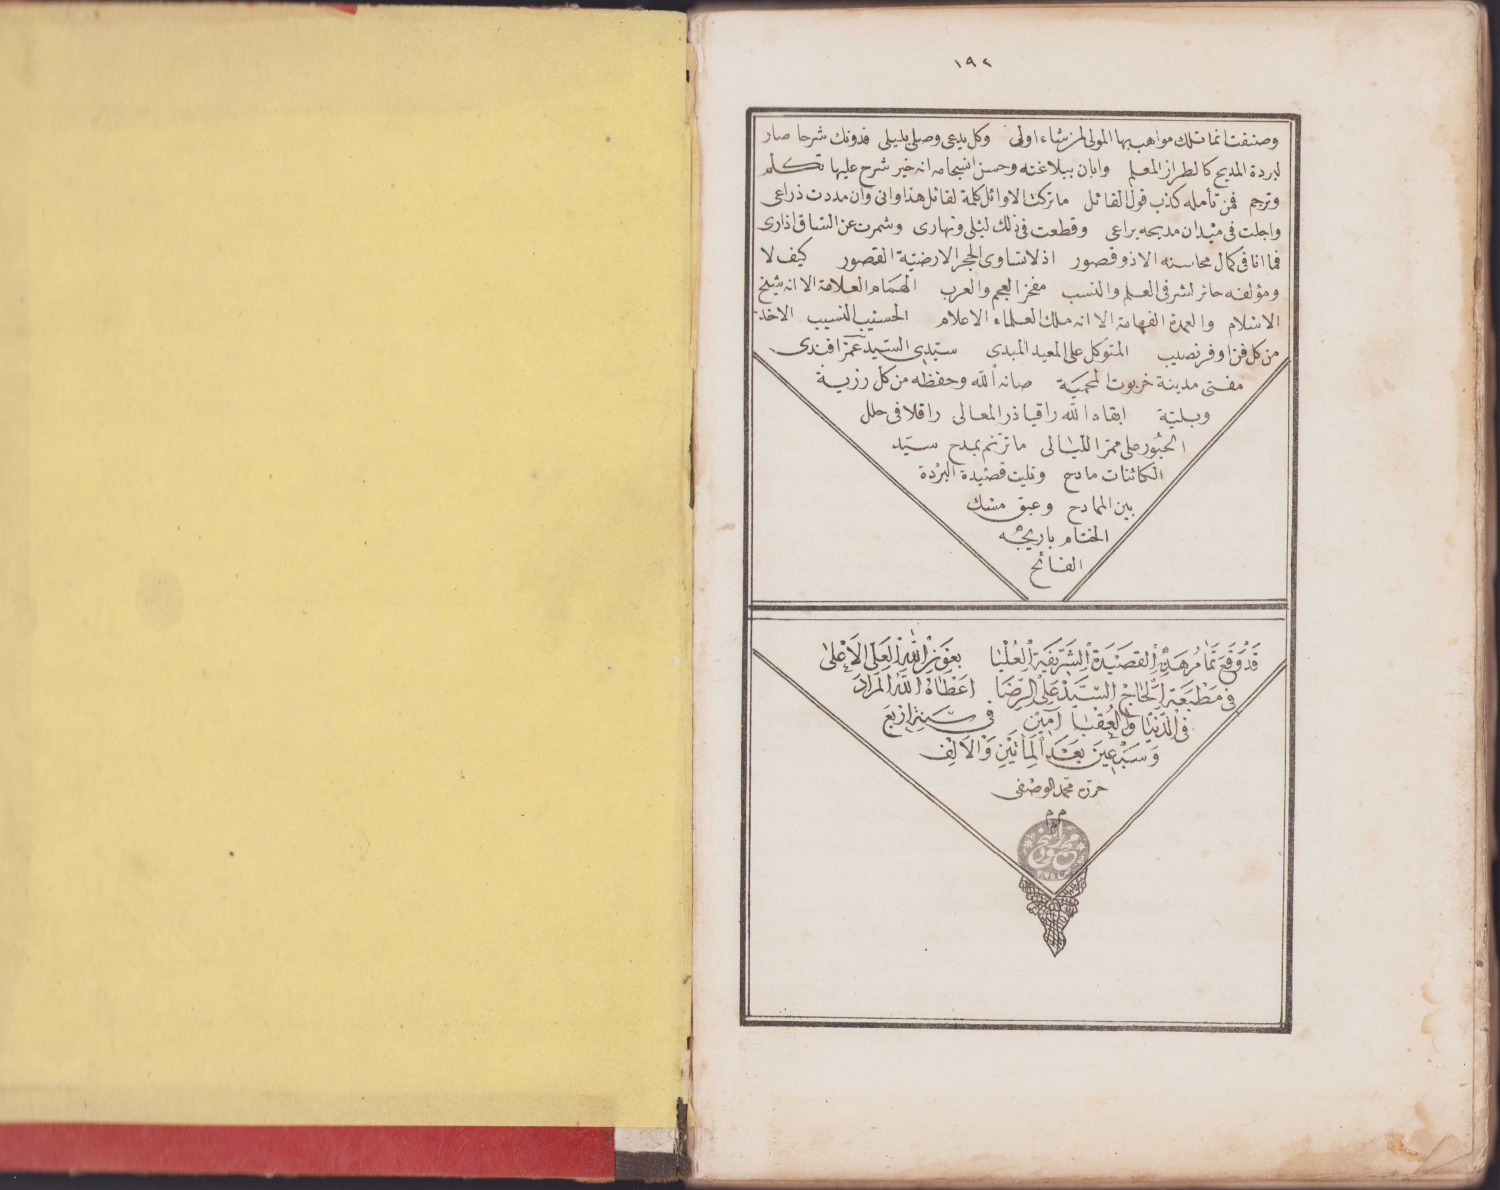 ١٩٢
وصنفت انما تلك مواهب يهبها المولى لمن شاء اولى وكل يدعى وصلى بليلى فدونك شرحا صار
لبردة المديح كالطراز المعلم وابان ببلاغته وحسن انسجامه انه خير شرح عليها تكلم
وترجم فمن تأمله كذب قول القائل ما ترك الاوائل كلمة لقائل هذا وانى وان مددت ذراعى
واجلت فى ميدان مديحه يراعى وقطعت فى ذلك ليلى ونهارى وشمرت عن الساق اذارى
فما انا فى كمال محاسنه الا ذو قصور اذ لا تساوى الحجر الارضية القصور كيف لا
ومؤلفه حائز لشرفى العلم والنسب مفخر العجم والعرب الهمام العلامة الا انه شيخ
الاسلام والعمدة الفهامة الا انه ملك العلماء الاعلام الحسيب النسيب الاخذ
من كل فن اوفر نصيب المتوكل على المعيد المبدى سيدى السيد عمر افندى
مفتى مدينة خربوت المحمية صانه الله وحفظه من كل رزية
وبلية ابقاه الله راقيا ذر المعالى رافلا فى حلل
الحبور على ممر الليالى ما ترنم بمدح سيد
الكائنات مادح وتليت قصيدة البردة
بين الممادح وعبق مسك
الختام باريجه
الفائح
قَدْ وَقَعَ تَمَامُ هَذِهِ الْقَصِيْدَةِ الشَّرِيْفَةِ الْعُلْيَا بِعَوْنِ اللهِ الْعَلِىِّ الْاَعْلَى
فِى مَطْبَعَةِ الْحَاجْ السَّيِّدْ عَلِى الرِّضَا اَعْطَاهُ اللهُ الْمُرَادَ
فِى الدُّنْيَا وَالْعُقْبَا آمِيْن فى سَنَةِ اَرْبَعَ
وَسَبْعِينَ بَعْدَ الْمِأتَيْنِ وَالْاَلْفِ
حرره محمد الوصفى
م م م